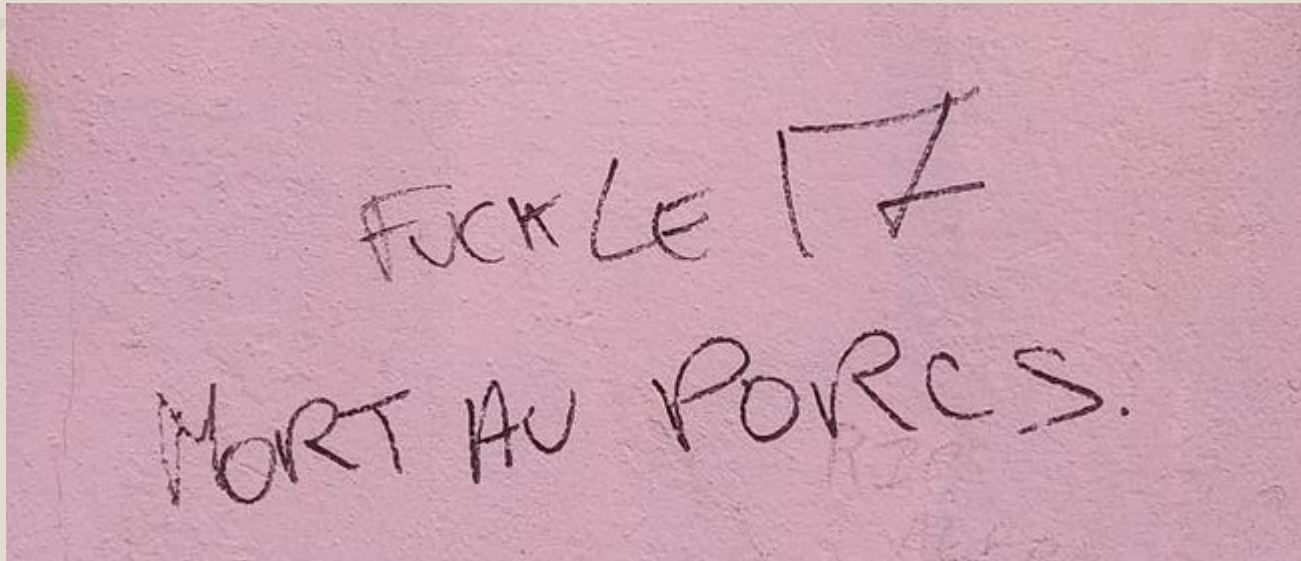 FUCK LE 17
MORT AU PORCS.